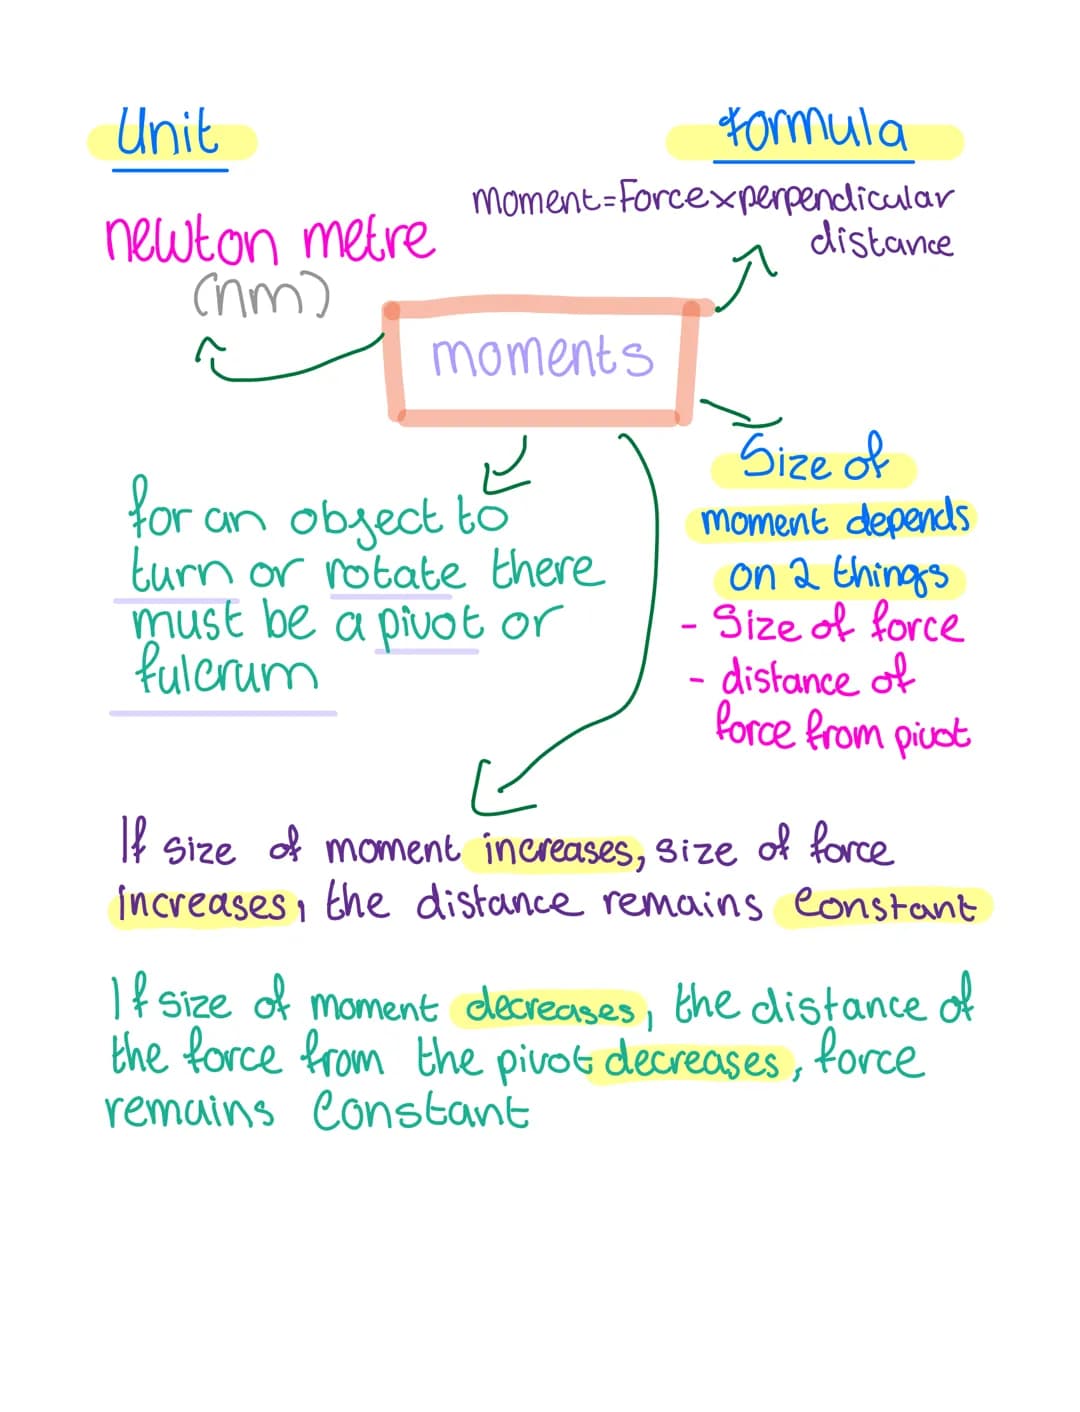 Unit
formula
newton metre
(nm)
moment=Forcexperpendicular
distance
moments
Size of
moment depends
on 2 things
- Size of force
- distance of
force from pivot
for an object to
turn or rotate there
must be a pivot or
fulcrum
If size of moment increases, size of force
increases, the distance remains constant
If size of moment decreases, the distance of
the force from the pivot decreases, force
remains constant